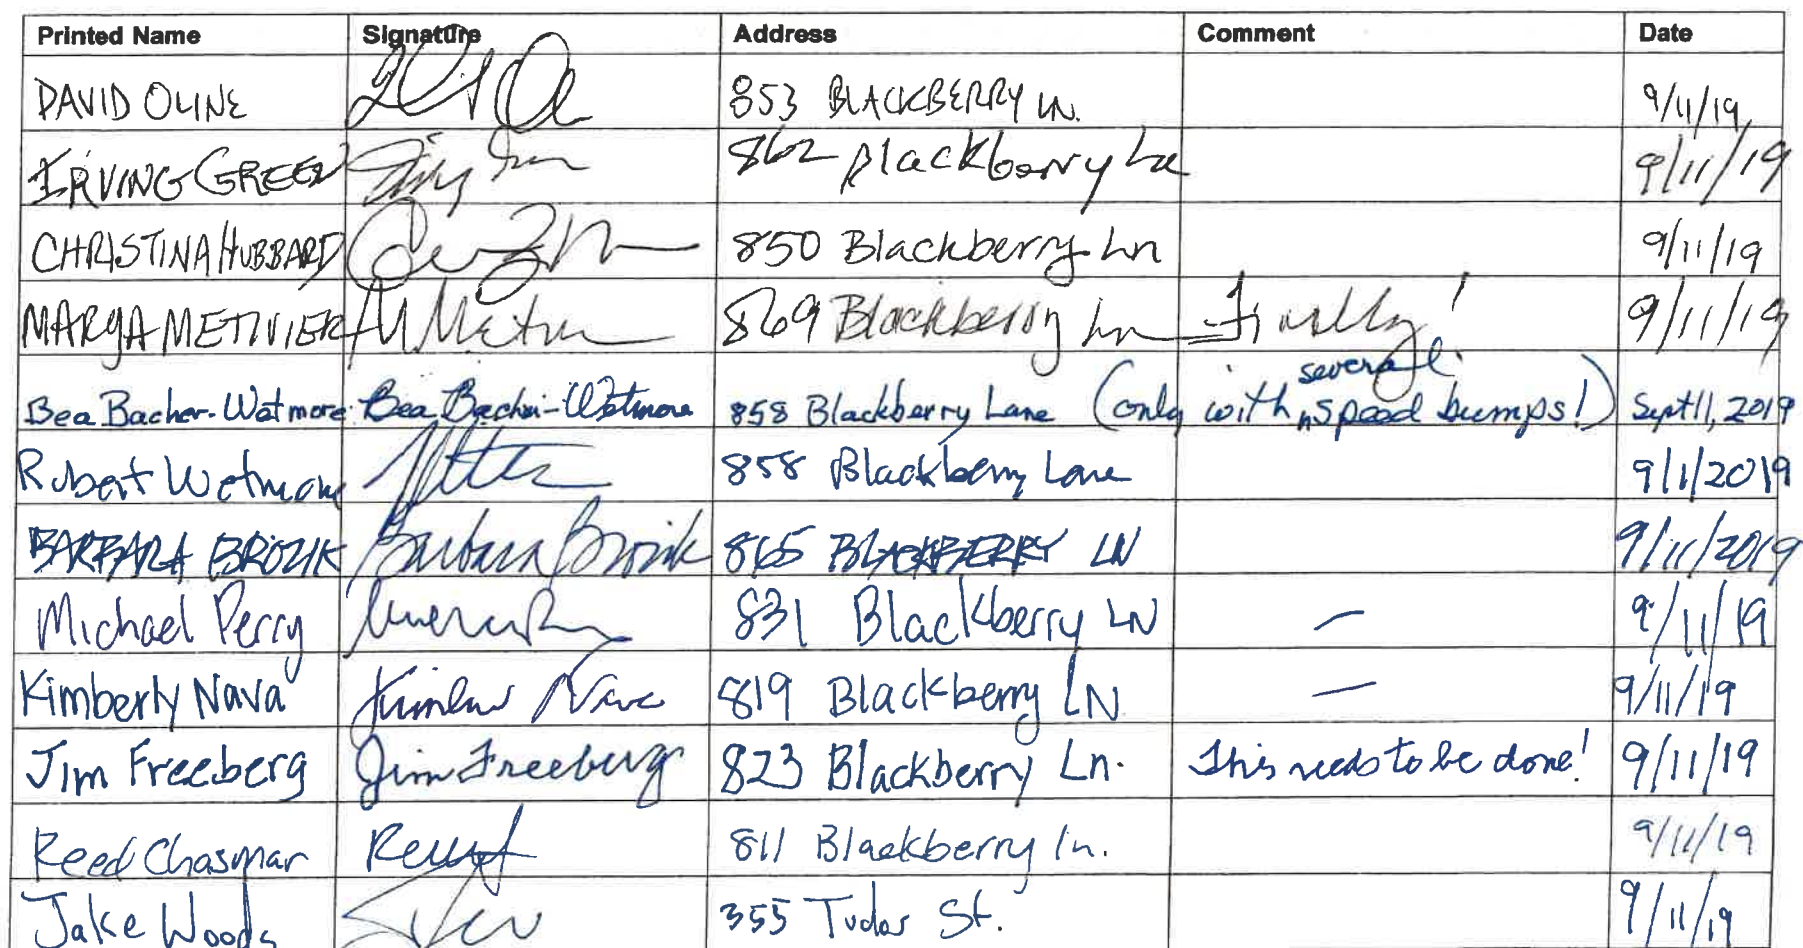 Printed Name Signature Address Comment Date
DAVID OLINE 853 BLACKBERRY LN. 9/11/19
IRVING GREEN 862 Blackberry Ln 9/11/19
CHRISTINA HUBBARD 850 Blackberry Ln 9/11/19
MARYA METIVIER M Metiv 869 Blackberry Ln Finally! 9/11/19
Bea Bacher-Wetmore Bea Bacher-Wetmore 858 Blackberry Lane (only with several speed bumps!) Sept 11, 2019
Robert Wetmore 858 Blackberry Lane 9/1/2019
BARBARA BROZIK Barbara Brozik 865 BLACKBERRY LN 9/11/2019
Michael Perry 831 Blackberry LN — 9/11/19
Kimberly Nava Kimberly Nava 819 Blackberry LN — 9/11/19
Jim Freeberg Jim Freeberg 823 Blackberry Ln. This needs to be done! 9/11/19
Reed Chasmar 811 Blackberry ln. 9/11/19
Jake Woods 355 Tudor St. 9/11/19